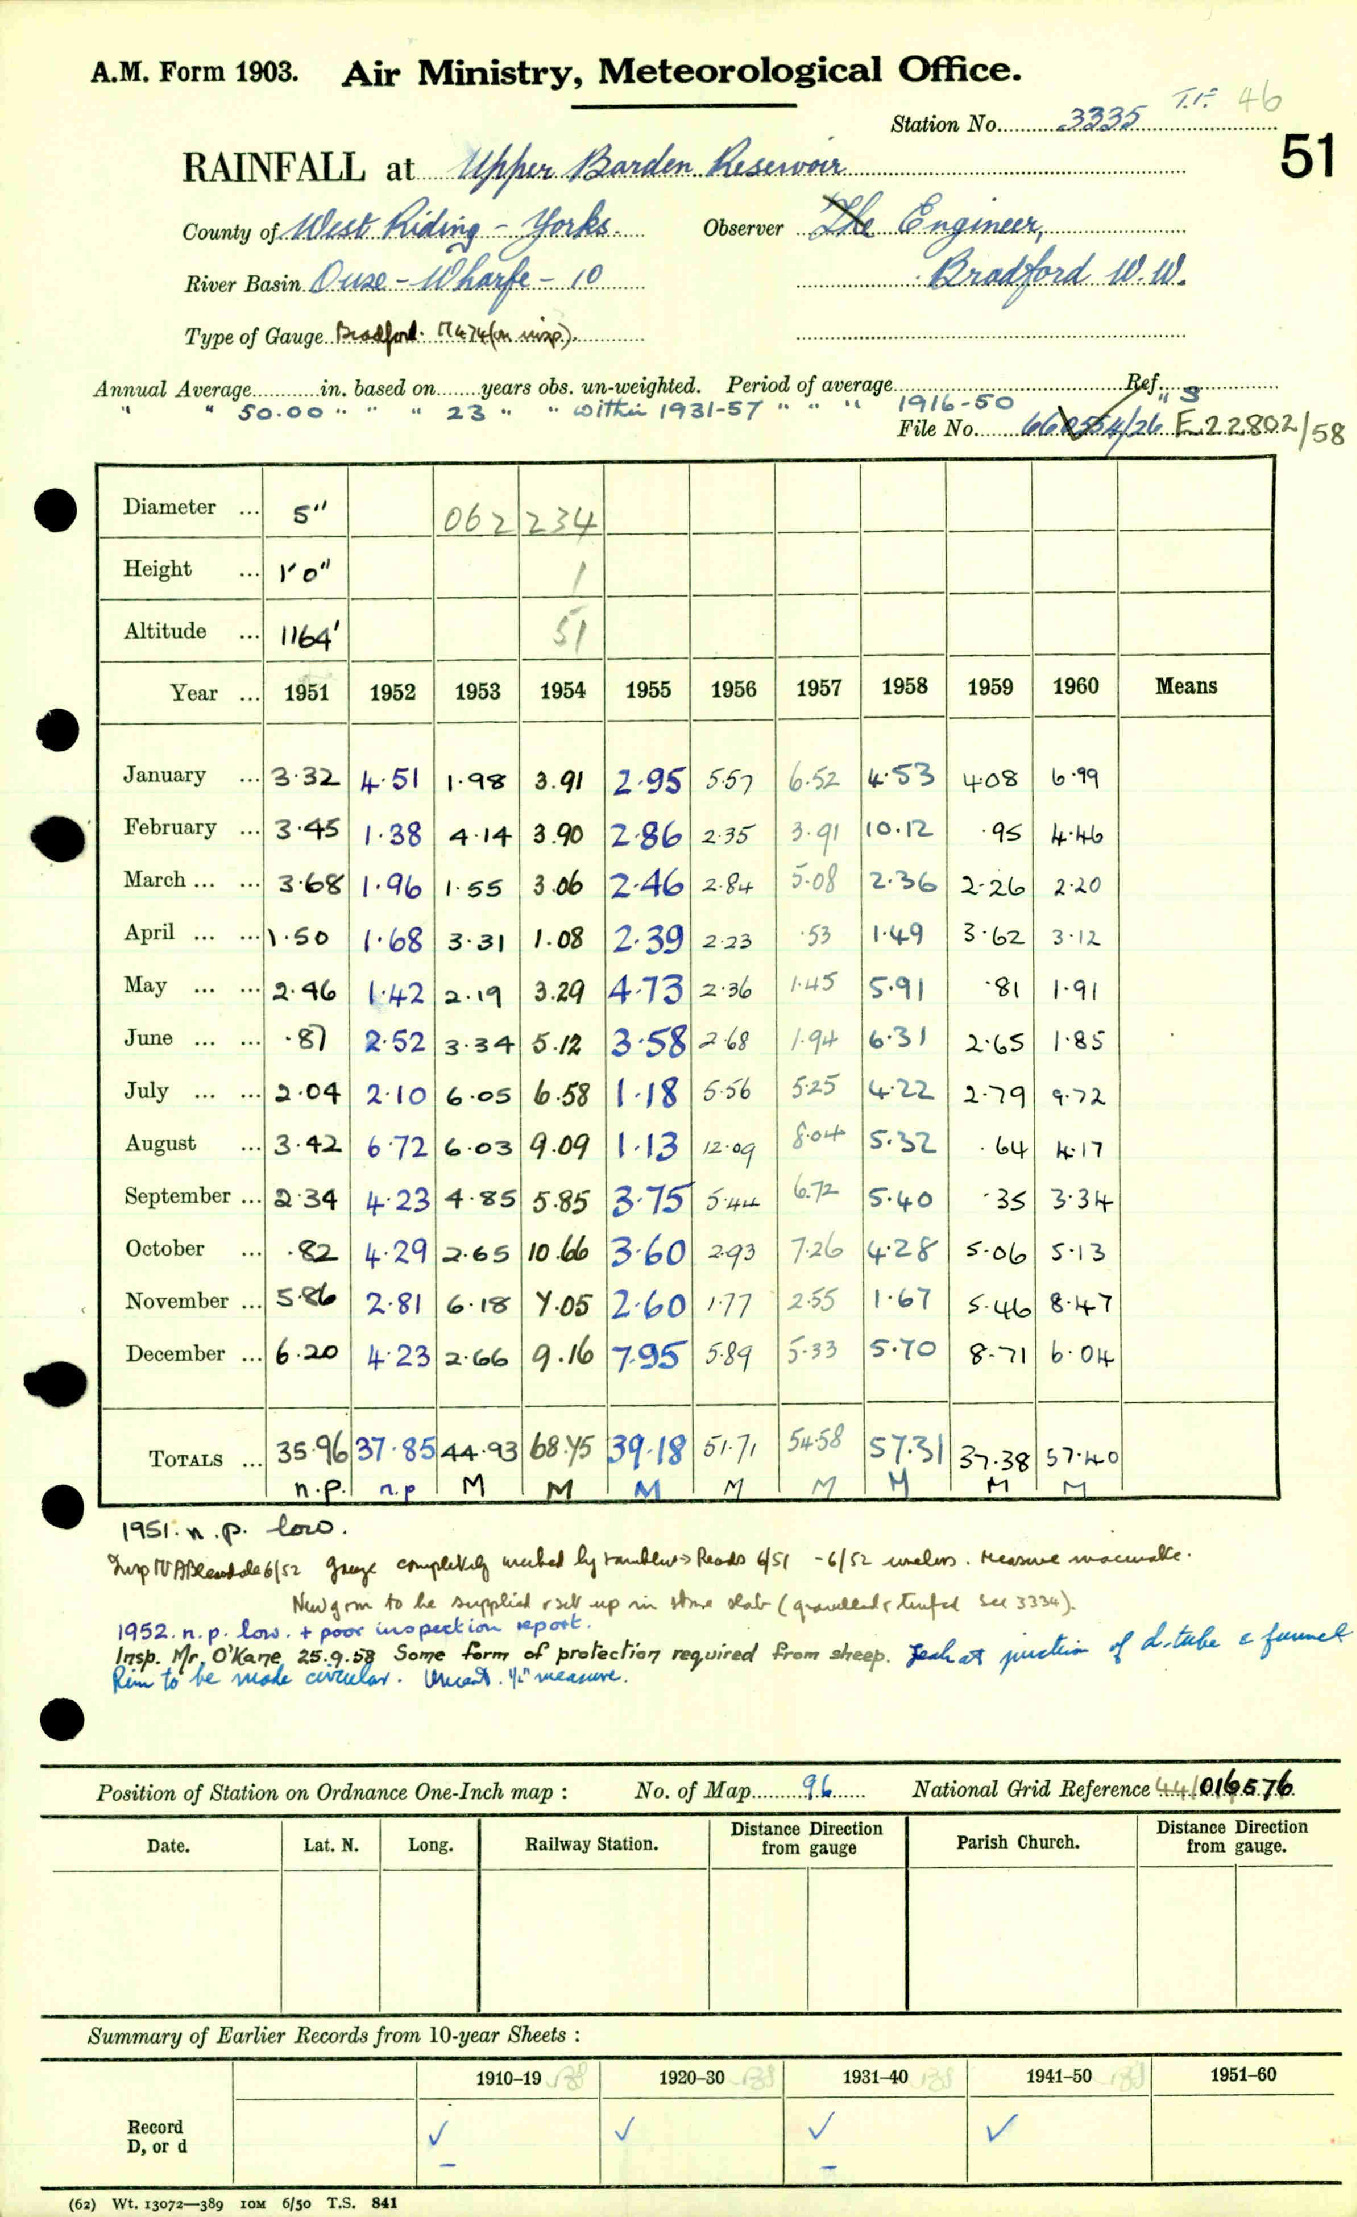 A.M. Form 1903. Air Ministry, Meteorological Office.
T.F. 46
Station No. 3335
51
RAINFALL at Upper Barden Reservoir
County of West Riding - Yorks. Observer The Engineer,
River Basin Ouse - Wharfe - 10 Bradford W.W.
Type of Gauge Bradford. M474 (on insp).
Annual Average in. based on years obs. un-weighted. Period of average Ref.
" " 50.00 " " " 23 " " within 1931-57 " " " 1916-50 " S
File No. 660554/26 E22802/58
Diameter ... 5" 062 234
Height ... 1'0" 1
Altitude ... 1164' 51
Year ... 1951 1952 1953 1954 1955 1956 1957 1958 1959 1960 Means
January ... 3.32 4.51 1.98 3.91 2.95 5.57 6.52 4.53 4.08 6.99
February ... 3.45 1.38 4.14 3.90 2.86 2.35 3.91 10.12 .95 4.46
March ... ... 3.68 1.96 1.55 3.06 2.46 2.84 5.08 2.36 2.26 2.20
April ... ... 1.50 1.68 3.31 1.08 2.39 2.23 .53 1.49 3.62 3.12
May ... ... 2.46 1.42 2.19 3.29 4.73 2.36 1.45 5.91 .81 1.91
June ... ... .87 2.52 3.34 5.12 3.58 2.68 1.94 6.31 2.65 1.85
July ... ... 2.04 2.10 6.05 6.58 1.18 5.56 5.25 4.22 2.79 9.72
August ... 3.42 6.72 6.03 9.09 1.13 12.09 8.04 5.32 .64 4.17
September ... 2.34 4.23 4.85 5.85 3.75 5.44 6.72 5.40 .35 3.34
October ... .82 4.29 2.65 10.66 3.60 2.93 7.26 4.28 5.06 5.13
November ... 5.86 2.81 6.18 7.05 2.60 1.77 2.55 1.67 5.46 8.47
December ... 6.20 4.23 2.66 9.16 7.95 5.89 5.33 5.70 8.71 6.04
TOTALS ... 35.96 37.85 44.93 68.75 39.18 51.71 54.58 57.31 37.38 57.40
n.p. n.p M M M M M M M M
1951. n.p. low.
Insp 6/52 Gauge completely wrecked by ramblers Reads 6/51 - 6/52 useless. Measure inaccurate.
New g to be supplied & set up in stone slab (gravelled & turfed see 3334).
1952. n.p. low. + poor inspection report.
Insp. Mr. O'Kane 25.9.58 Some form of protection required from sheep. Leak at junction of d-tube & funnel
Rim to be made circular. ½" measure.
Position of Station on Ordnance One-Inch map : No. of Map 96 National Grid Reference 44/016576
Date. Lat. N. Long. Railway Station. Distance Direction from gauge Parish Church. Distance Direction from gauge.
Summary of Earlier Records from 10-year Sheets :
1910-19 1920-30 1931-40 1941-50 1951-60
Record
D, or d ✓ ✓ ✓ ✓
(62) Wt. 13072—389 10M 6/50 T.S. 841